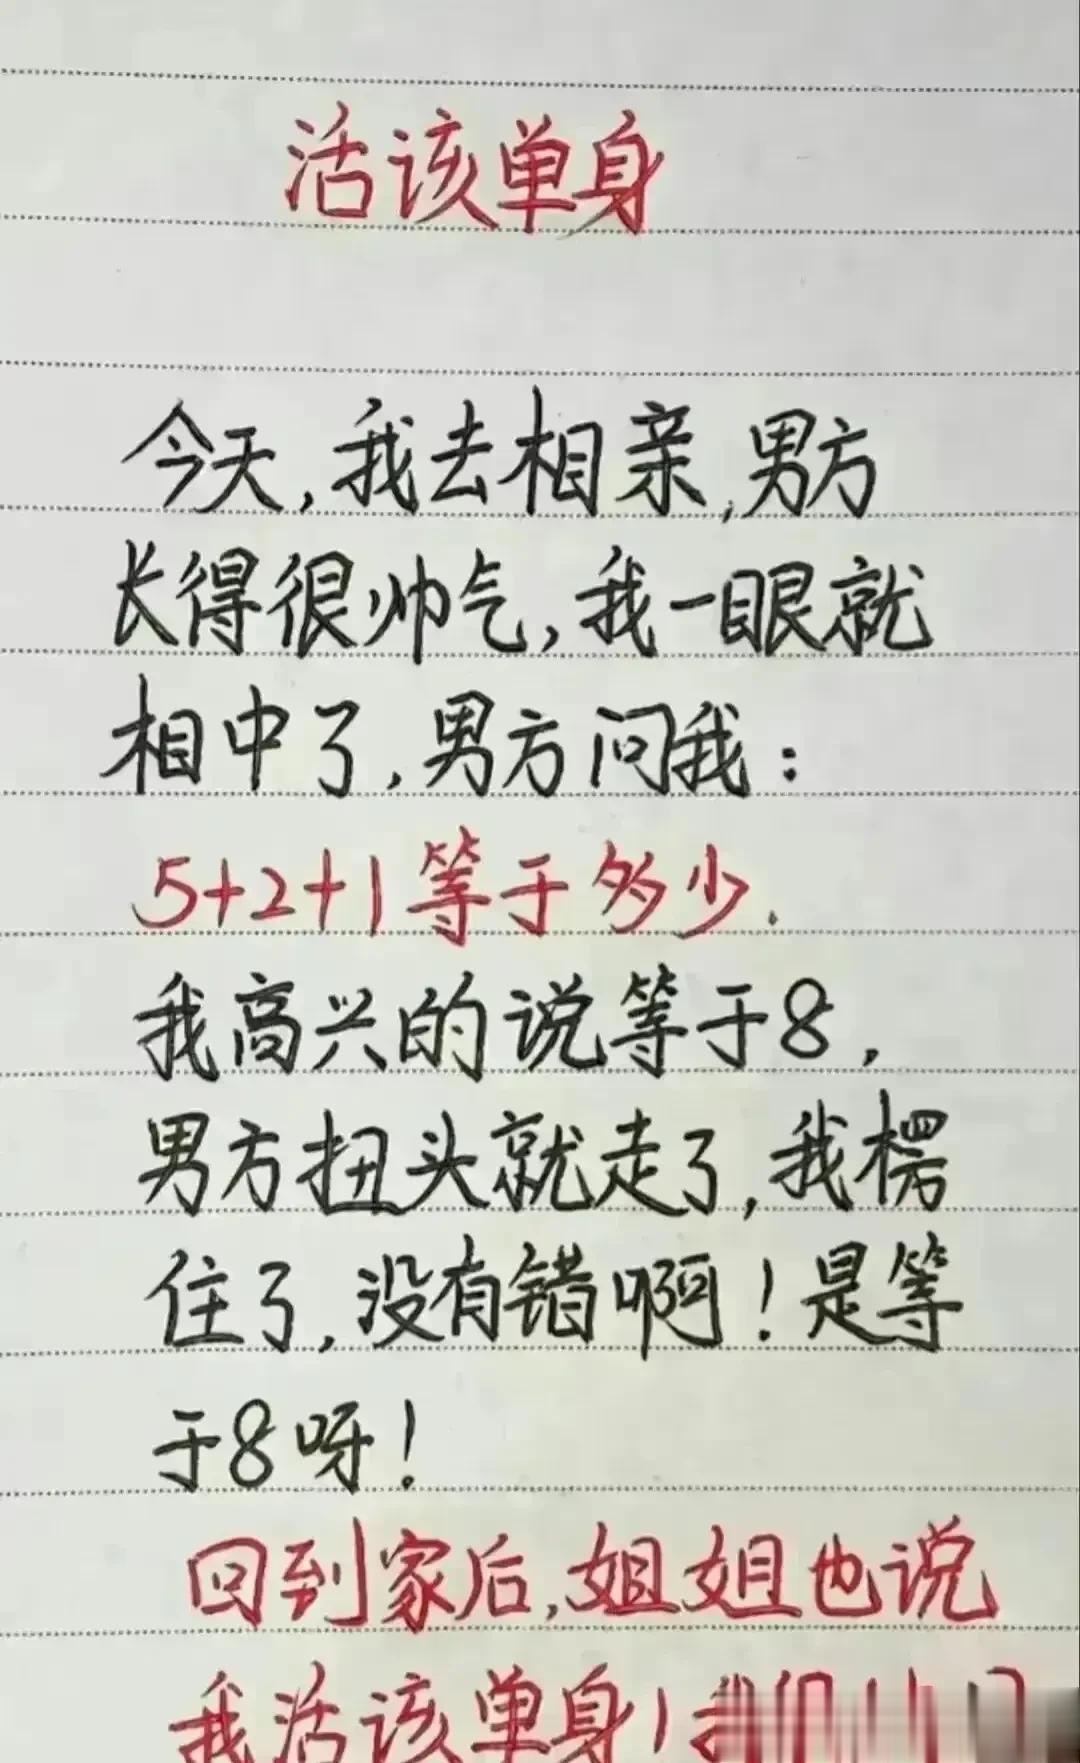 活该单身
今天,我去相亲,男方
长得很帅气,我一眼就
相中了,男方问我:
5+2+1等于多少.
我高兴的说等于8,
男方扭头就走了,我楞
住了,没有错啊!是等
于8呀!
回到家后,姐姐也说
我活该单身!我